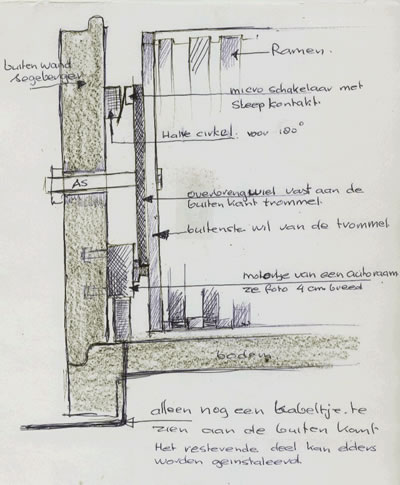 Ramen.
buiten wand
sogebergen
micro schakelaar met
Sleep kontakt.
Halve cirkel. voor 180°
AS
overbreng wiel vast aan de
buiten kant trommel.
buitenste wil van de trommel
motortje van een autoraam
ze foto 4 cm breed
bodem
alleen nog een kabeltje te
zien aan de buiten kant
Het resterende deel kan elders
worden geinstaleerd